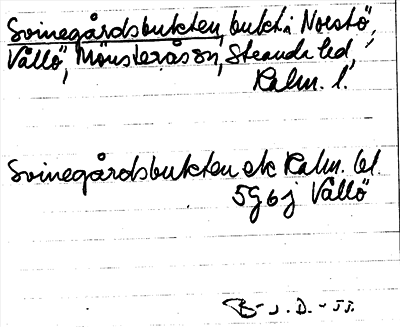 Svinegårdsbukten, bukt i Norstö,
Vållö, Mönsterås sn, Stranda hd,
Kalm. l.
Svinegårdsbukten ek Kalm. bl.
5g6j Vållö
B- J. D. - 55.